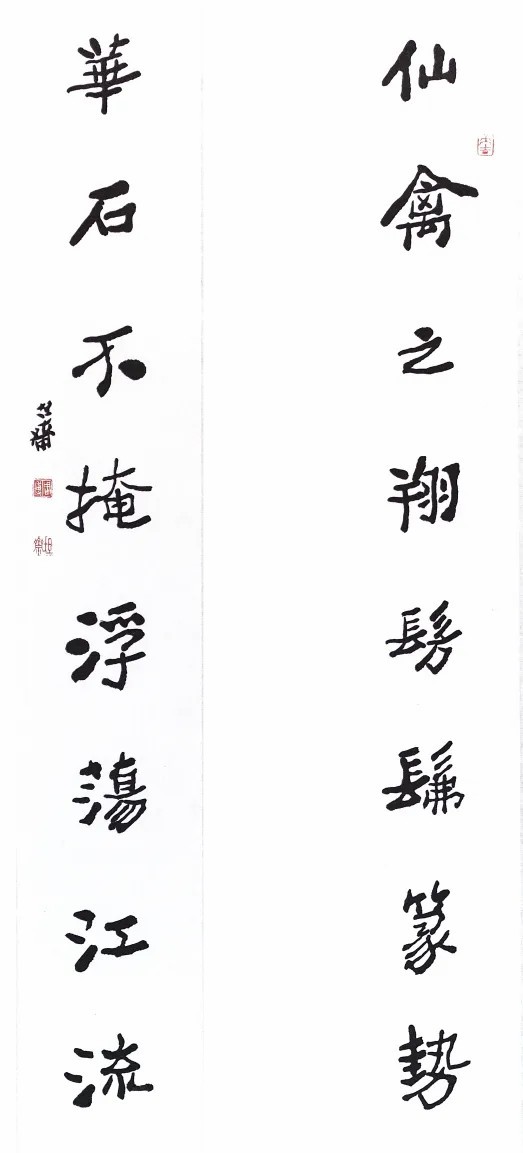 仙禽之翔髣髴篆勢
華石不掩浮蕩江流